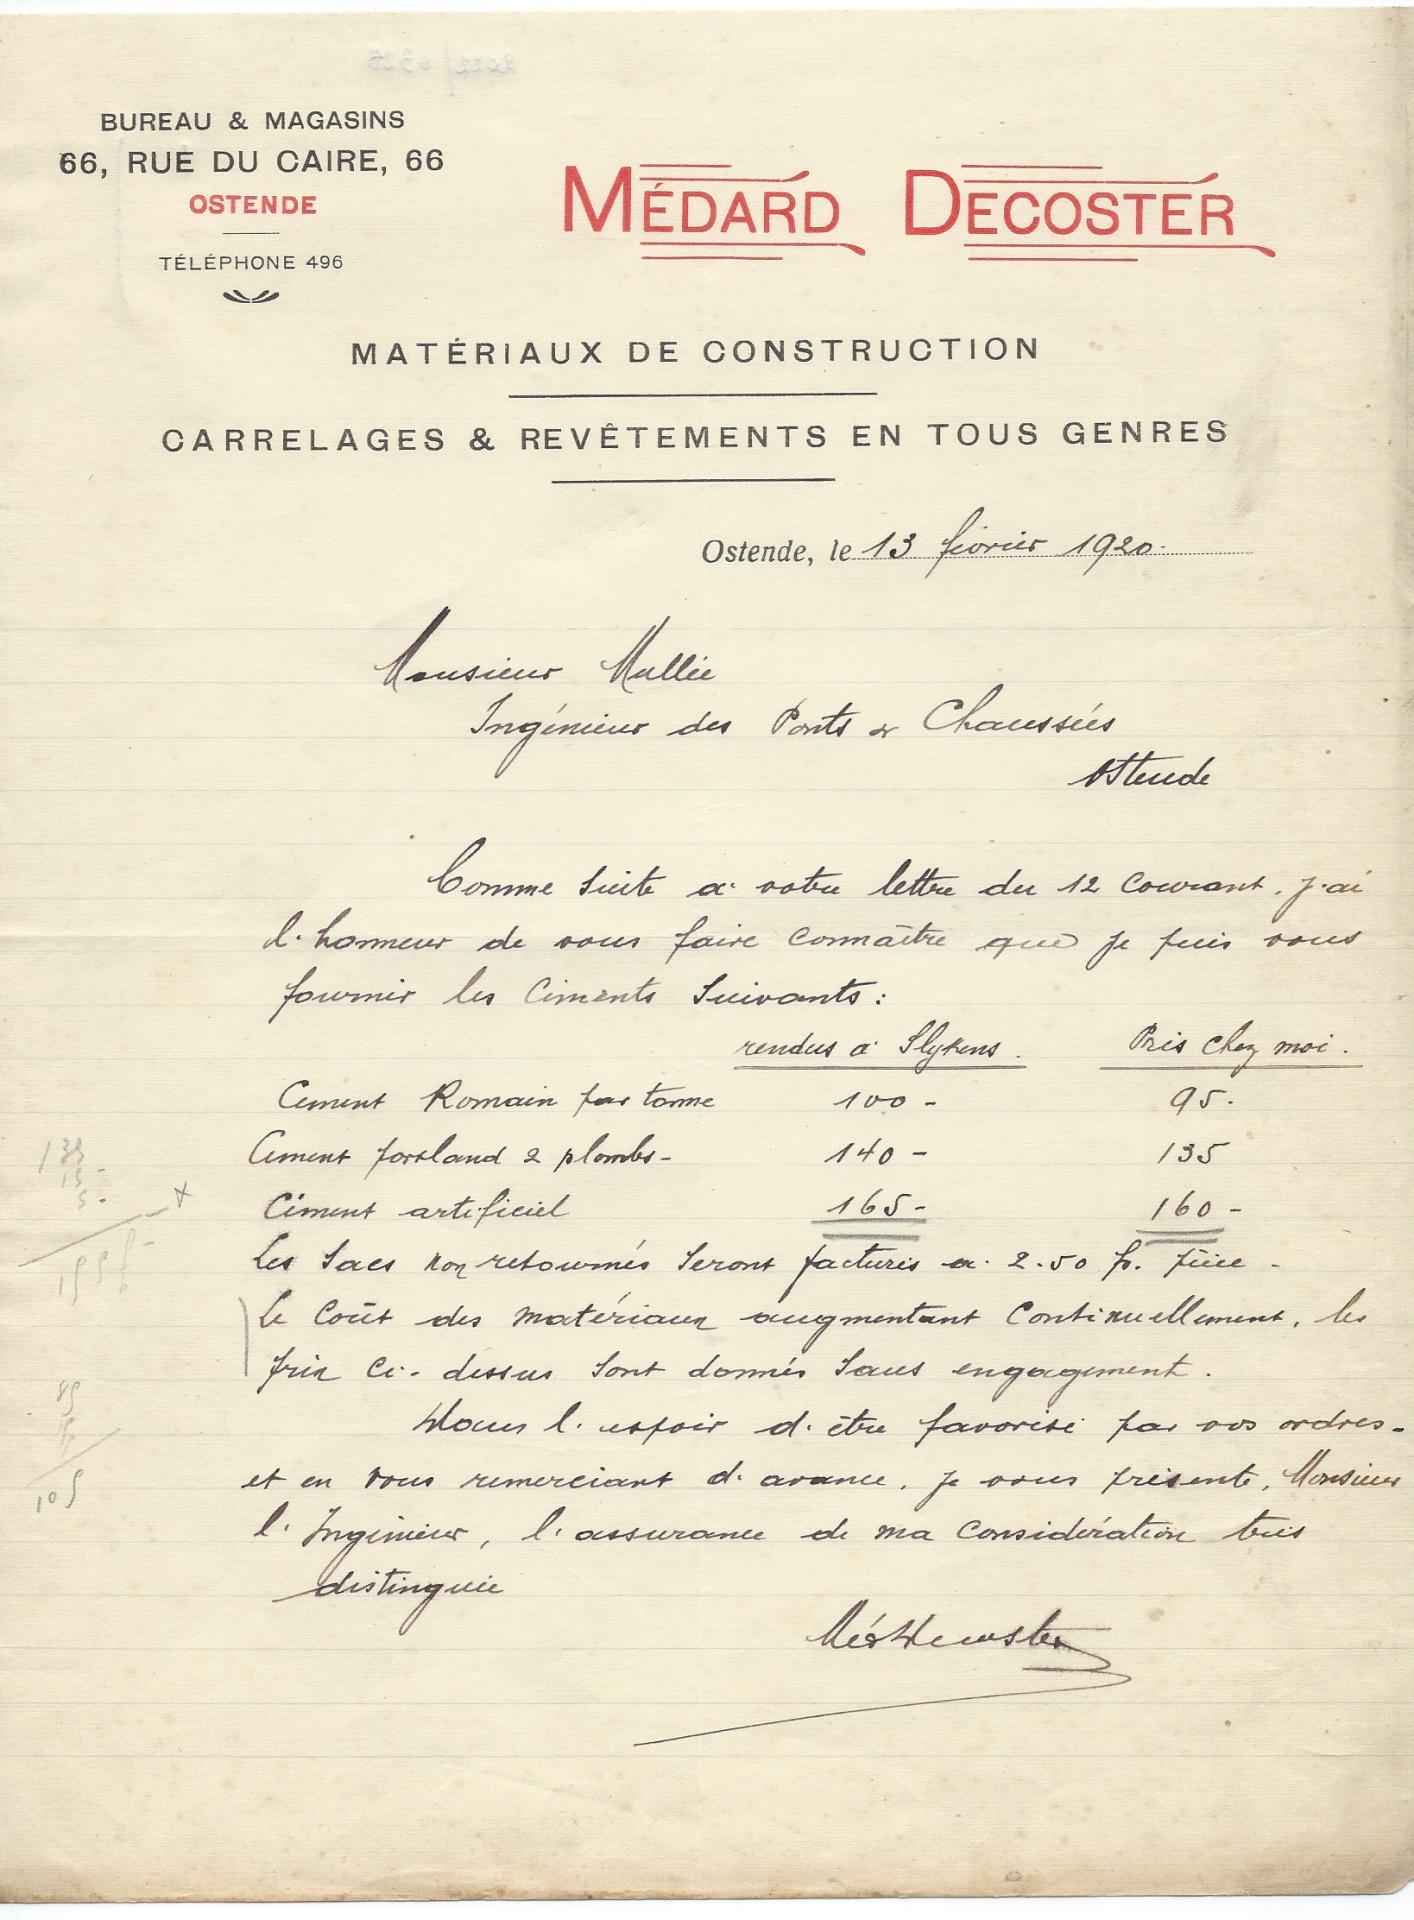 BUREAU & MAGASINS
66, RUE DU CAIRE, 66
OSTENDE
TÉLÉPHONE 496
MÉDARD DECOSTER
MATÉRIAUX DE CONSTRUCTION
CARRELAGES & REVÊTEMENTS EN TOUS GENRES
Ostende, le 13 février 1920.
Monsieur Mullie
Ingénieur des Ponts & Chaussées
Ostende
Comme suite a votre lettre du 12 courant, j'ai
l'honneur de vous faire connaître que je puis vous
fournir les Ciments suivants :
rendus a Slykens. Pris chez moi.
Ciment Romain par tonne 100 - 95.
Ciment portland 2 plombs - 140 - 135
Ciment artificiel 165 - 160 -
Les sacs non retournés seront facturés a 2.50 p. pièce -
Le coût des matériaux augmentant continuellement, les
prix ci-dessus sont donnés sans engagement.
Dans l'espoir d'être favorisé par vos ordres -
et en vous remerciant d'avance, je vous présente, Monsieur
l'Ingénieur, l'assurance de ma considération très
distinguée
Méd Decoster
135
15 -
5 -
105